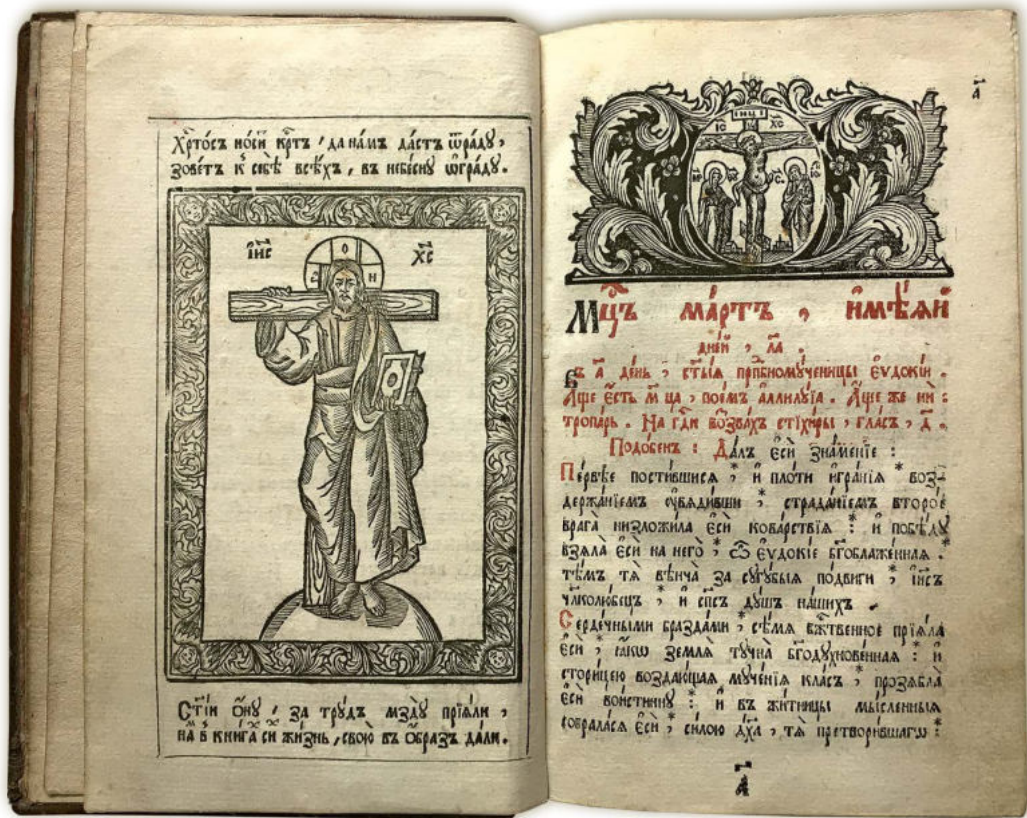 Хр҇то́съ но́ситъ кр҇тъ, да на́мъ да́стъ ѿра́ду,
зове́тъ к̾ себѣ̀ всѣ́хъ, въ небе́сну ѡ҆гра́ду.
І҆И҃С Х҃С
Ѡ О Н
Ст҃і́и ѻ҆́ну, за трꙋ́дъ мздꙋ̀ прїѧ́ли,
на́ в̾ кни́га си жи́знь, свою̀ въ ѻ҆́бразъ да́ли.
а҃
ІНЦІ
ІС ХС
Мц҇ъ ма́ртъ, и҆мѣ́ѧй
дні́й, ла҃.
Въ а҃ де́нь, ст҃ы́ѧ прпⷣбномꙋ́ченицы є҆ѵдокі́и.
А҆́ще є҆́сть м҃ ца, пое́мъ а҆ллилꙋ́їа. А҆́ще же нѝ:
тропа́рь. На гдⷭ҇и воззва́хъ стїхи́ры, гла́съ, д҃.
Подо́бенъ: Да́лъ є҆сѝ зна́менїе:
Пе́рвѣе пости́вшисѧ* и҆ пло́ти и҆гра́нїѧ* воз-
держа́нїемъ ᲂу҆вѧди́вши* страда́нїемъ второ́е
врага̀ низложи́ла є҆сѝ кова́рствїѧ: и҆ побѣ́дꙋ
взѧла̀ є҆сѝ на него̀* ѽ є҆ѵдокі́е бг҃облаже́ннаѧ.
тѣ́мъ тѧ̀ вѣнча̀ за сꙋгꙋ́быѧ по́двиги, і҆и҃съ
чл҃колю́бецъ, и҆ сп҃съ дꙋ́шъ на́шихъ.
Серде́чными бразда́ми, сѣ́мѧ бж҇твенное прїѧ́ла
є҆сѝ, ꙗ҆́кѡ землѧ̀ тꙋ́чна бг҃одꙋхнове́ннаѧ: и҆
стори́цею воздаю́щаѧ мꙋче́нїѧ кла́съ, прозѧбла̀
є҆сѝ вои́стиннꙋ*: и҆ въ жи́тницы мы́сленныѧ
собра́ласѧ є҆сѝ, си́лою дх҃а, тѧ̀ претвори́вшагѡ:
а҃